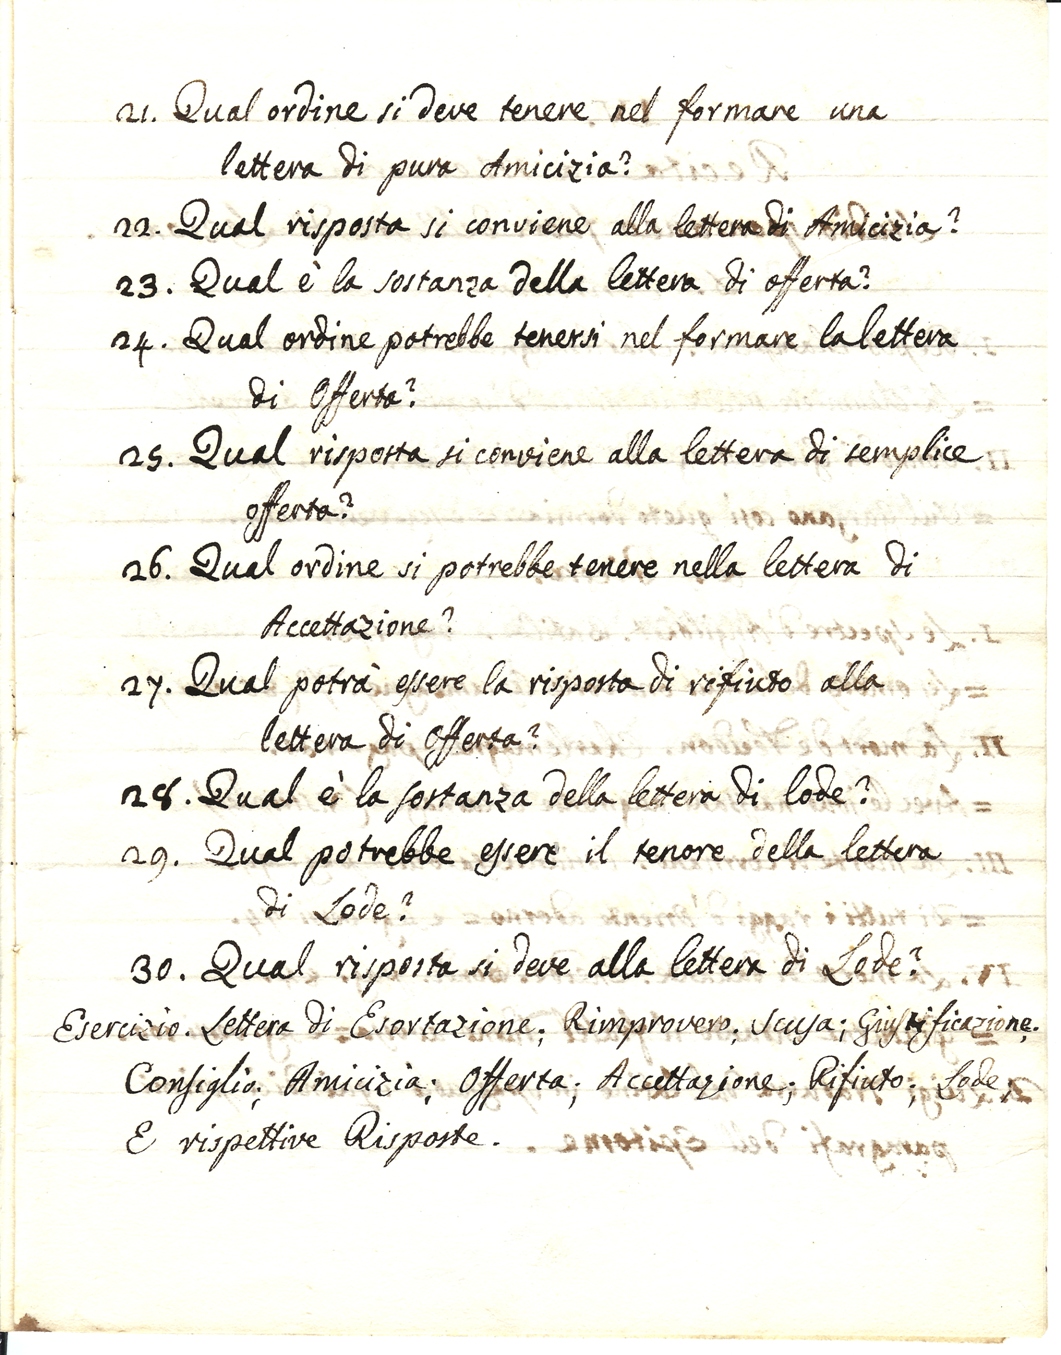 21. Qual ordine si deve tenere nel formare una
lettera di pura Amicizia?
22. Qual risposta si conviene alla lettera di Amicizia?
23. Qual è la sostanza della lettera di offerta?
24. Qual ordine potrebbe tenersi nel formare la lettera
di Offerta?
25. Qual risposta si conviene alla lettera di semplice
offerta?
26. Qual ordine si potrebbe tenere nella lettera di
Accettazione?
27. Qual potrà essere la risposta di rifiuto alla
lettera di Offerta?
28. Qual è la sostanza della lettera di lode?
29. Qual potrebbe essere il tenore della lettera
di Lode?
30. Qual risposta si deve alla lettera di Lode?
Esercizio. Lettera di Esortazione; Rimprovero; Scusa; Giustificazione;
Consiglio; Amicizia; Offerta; Accettazione; Rifiuto; Lode,
E rispettive Risposte.